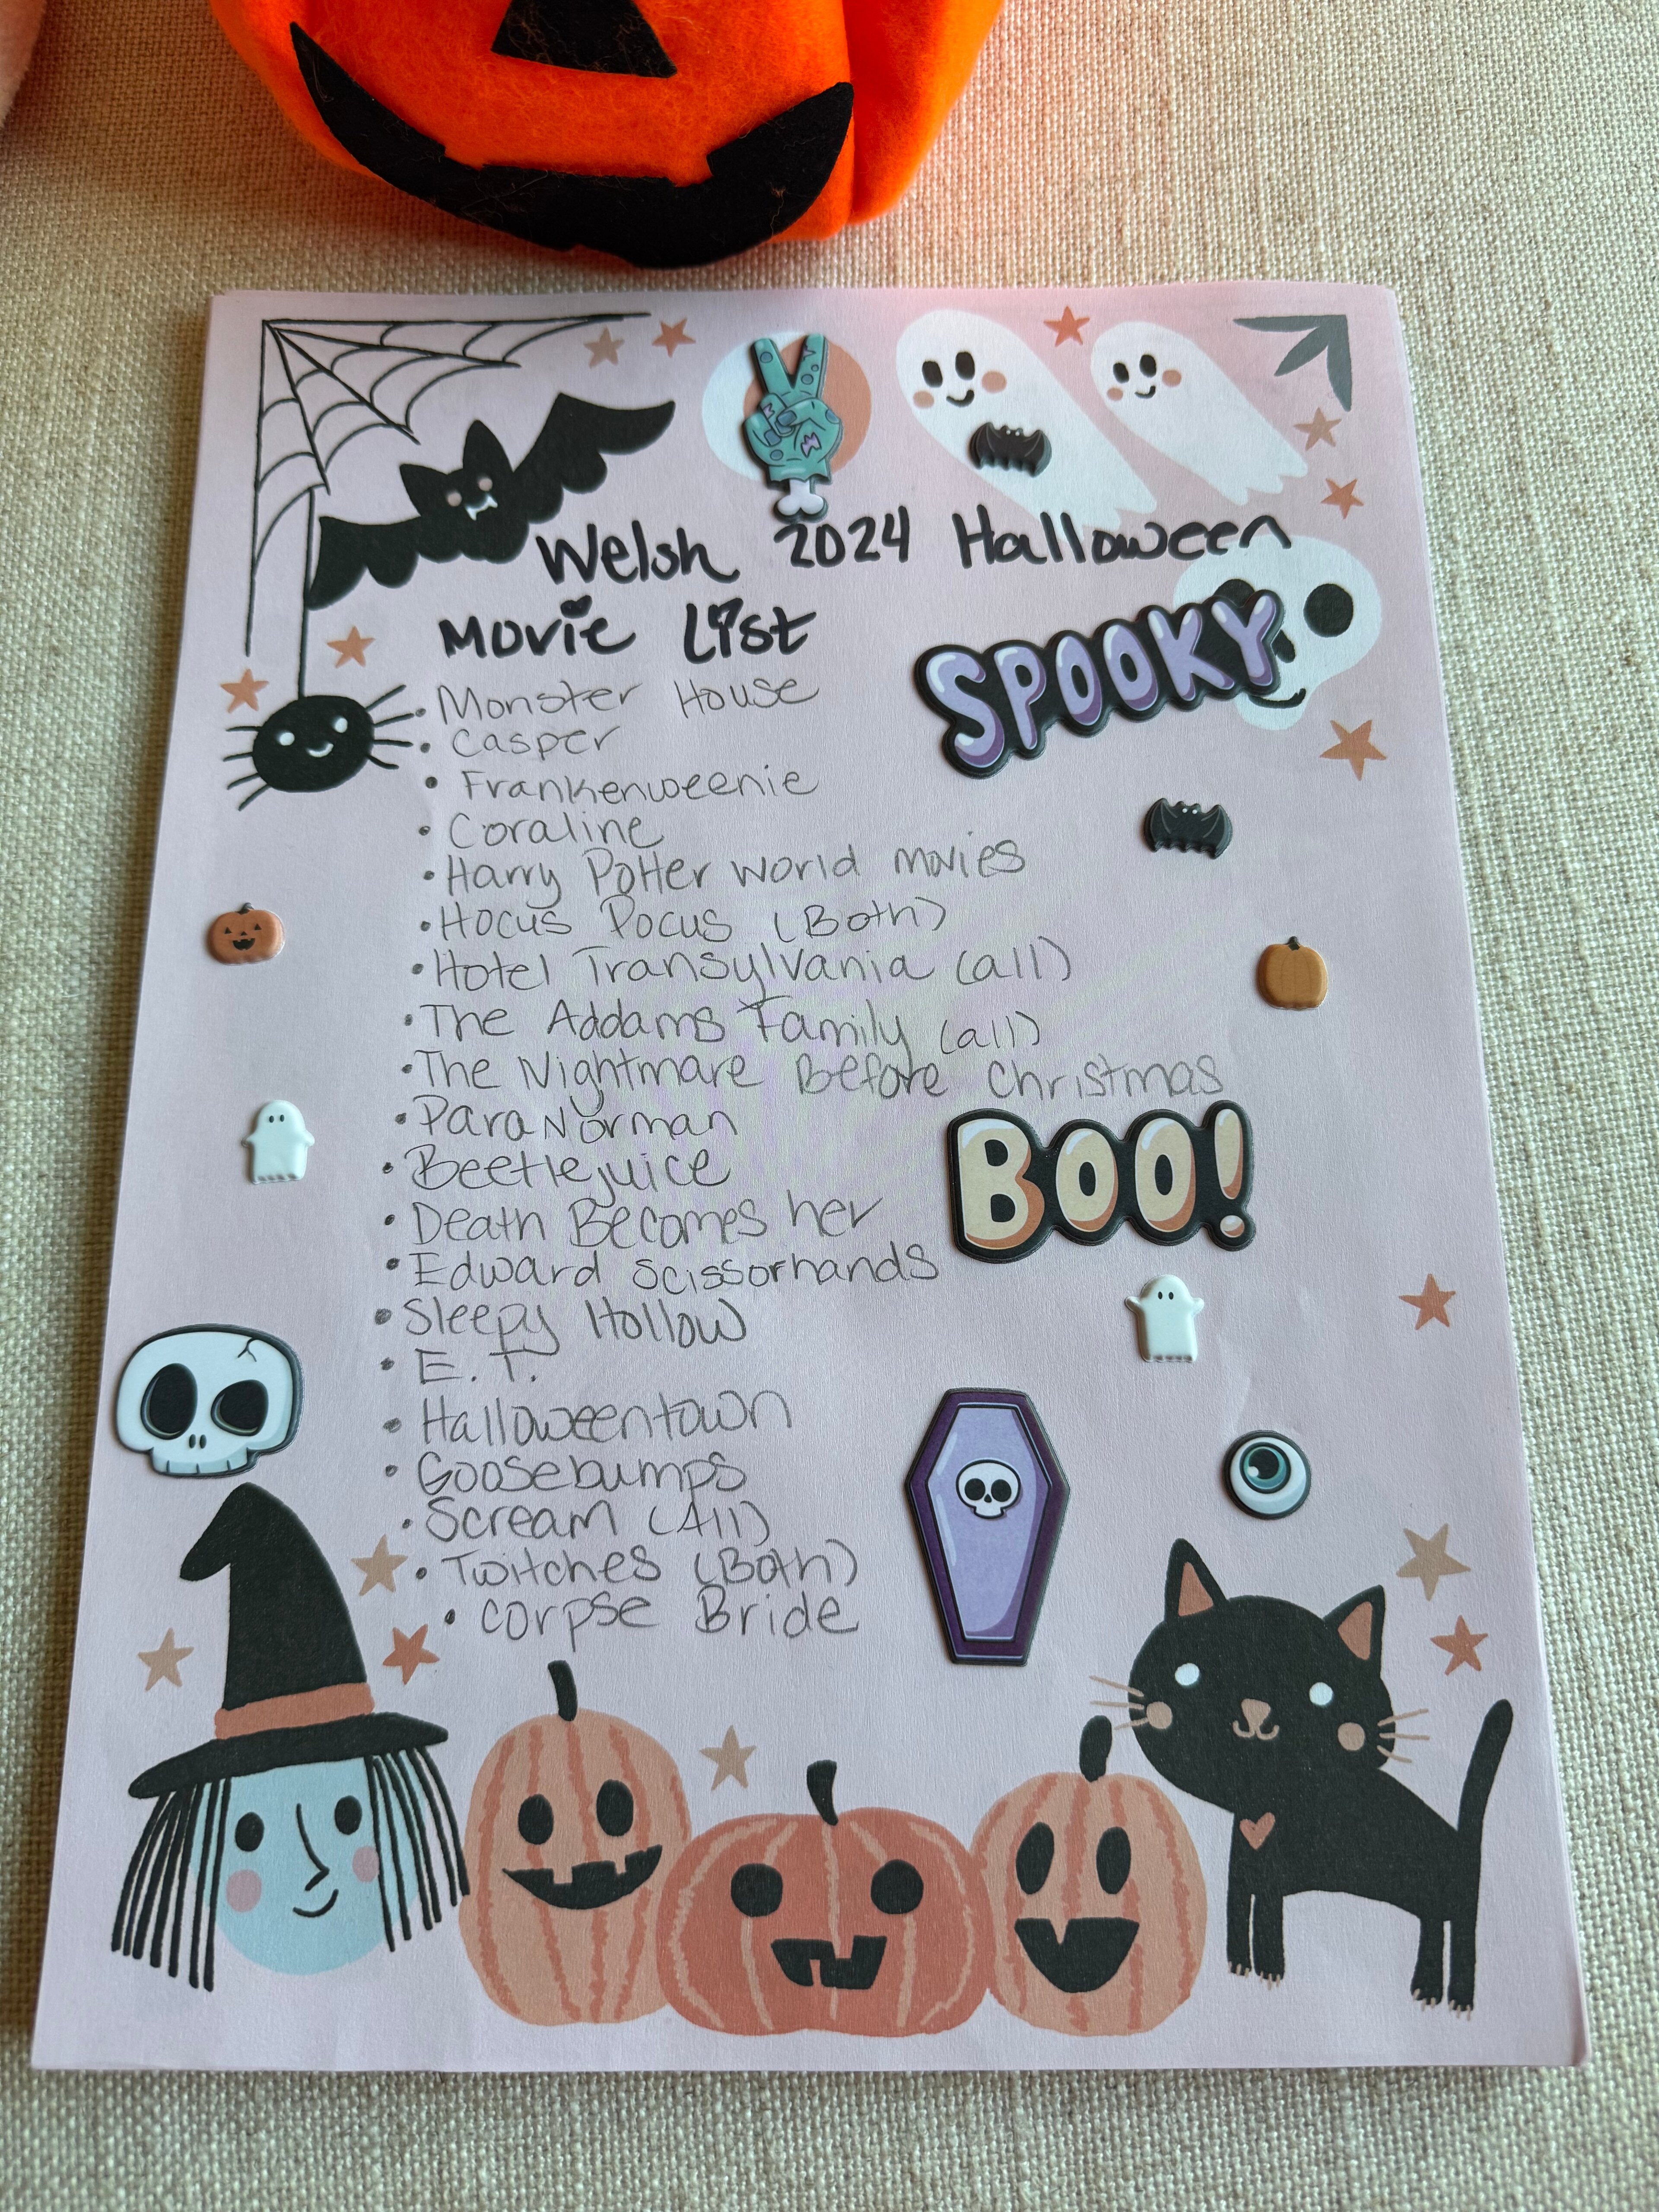 Welsh 2024 Halloween
Movie List
SPOOKY
• Monster House
• Casper
• Frankenweenie
• Coraline
• Harry Potter world movies
• Hocus Pocus (Both)
• Hotel Transylvania (all)
• The Addams Family (all)
• The Nightmare Before Christmas
• ParaNorman
• Beetlejuice
BOO!
• Death Becomes her
• Edward Scissorhands
• Sleepy Hollow
• E.T.
• Halloweentown
• Goosebumps
• Scream (All)
• Twitches (Both)
• Corpse Bride